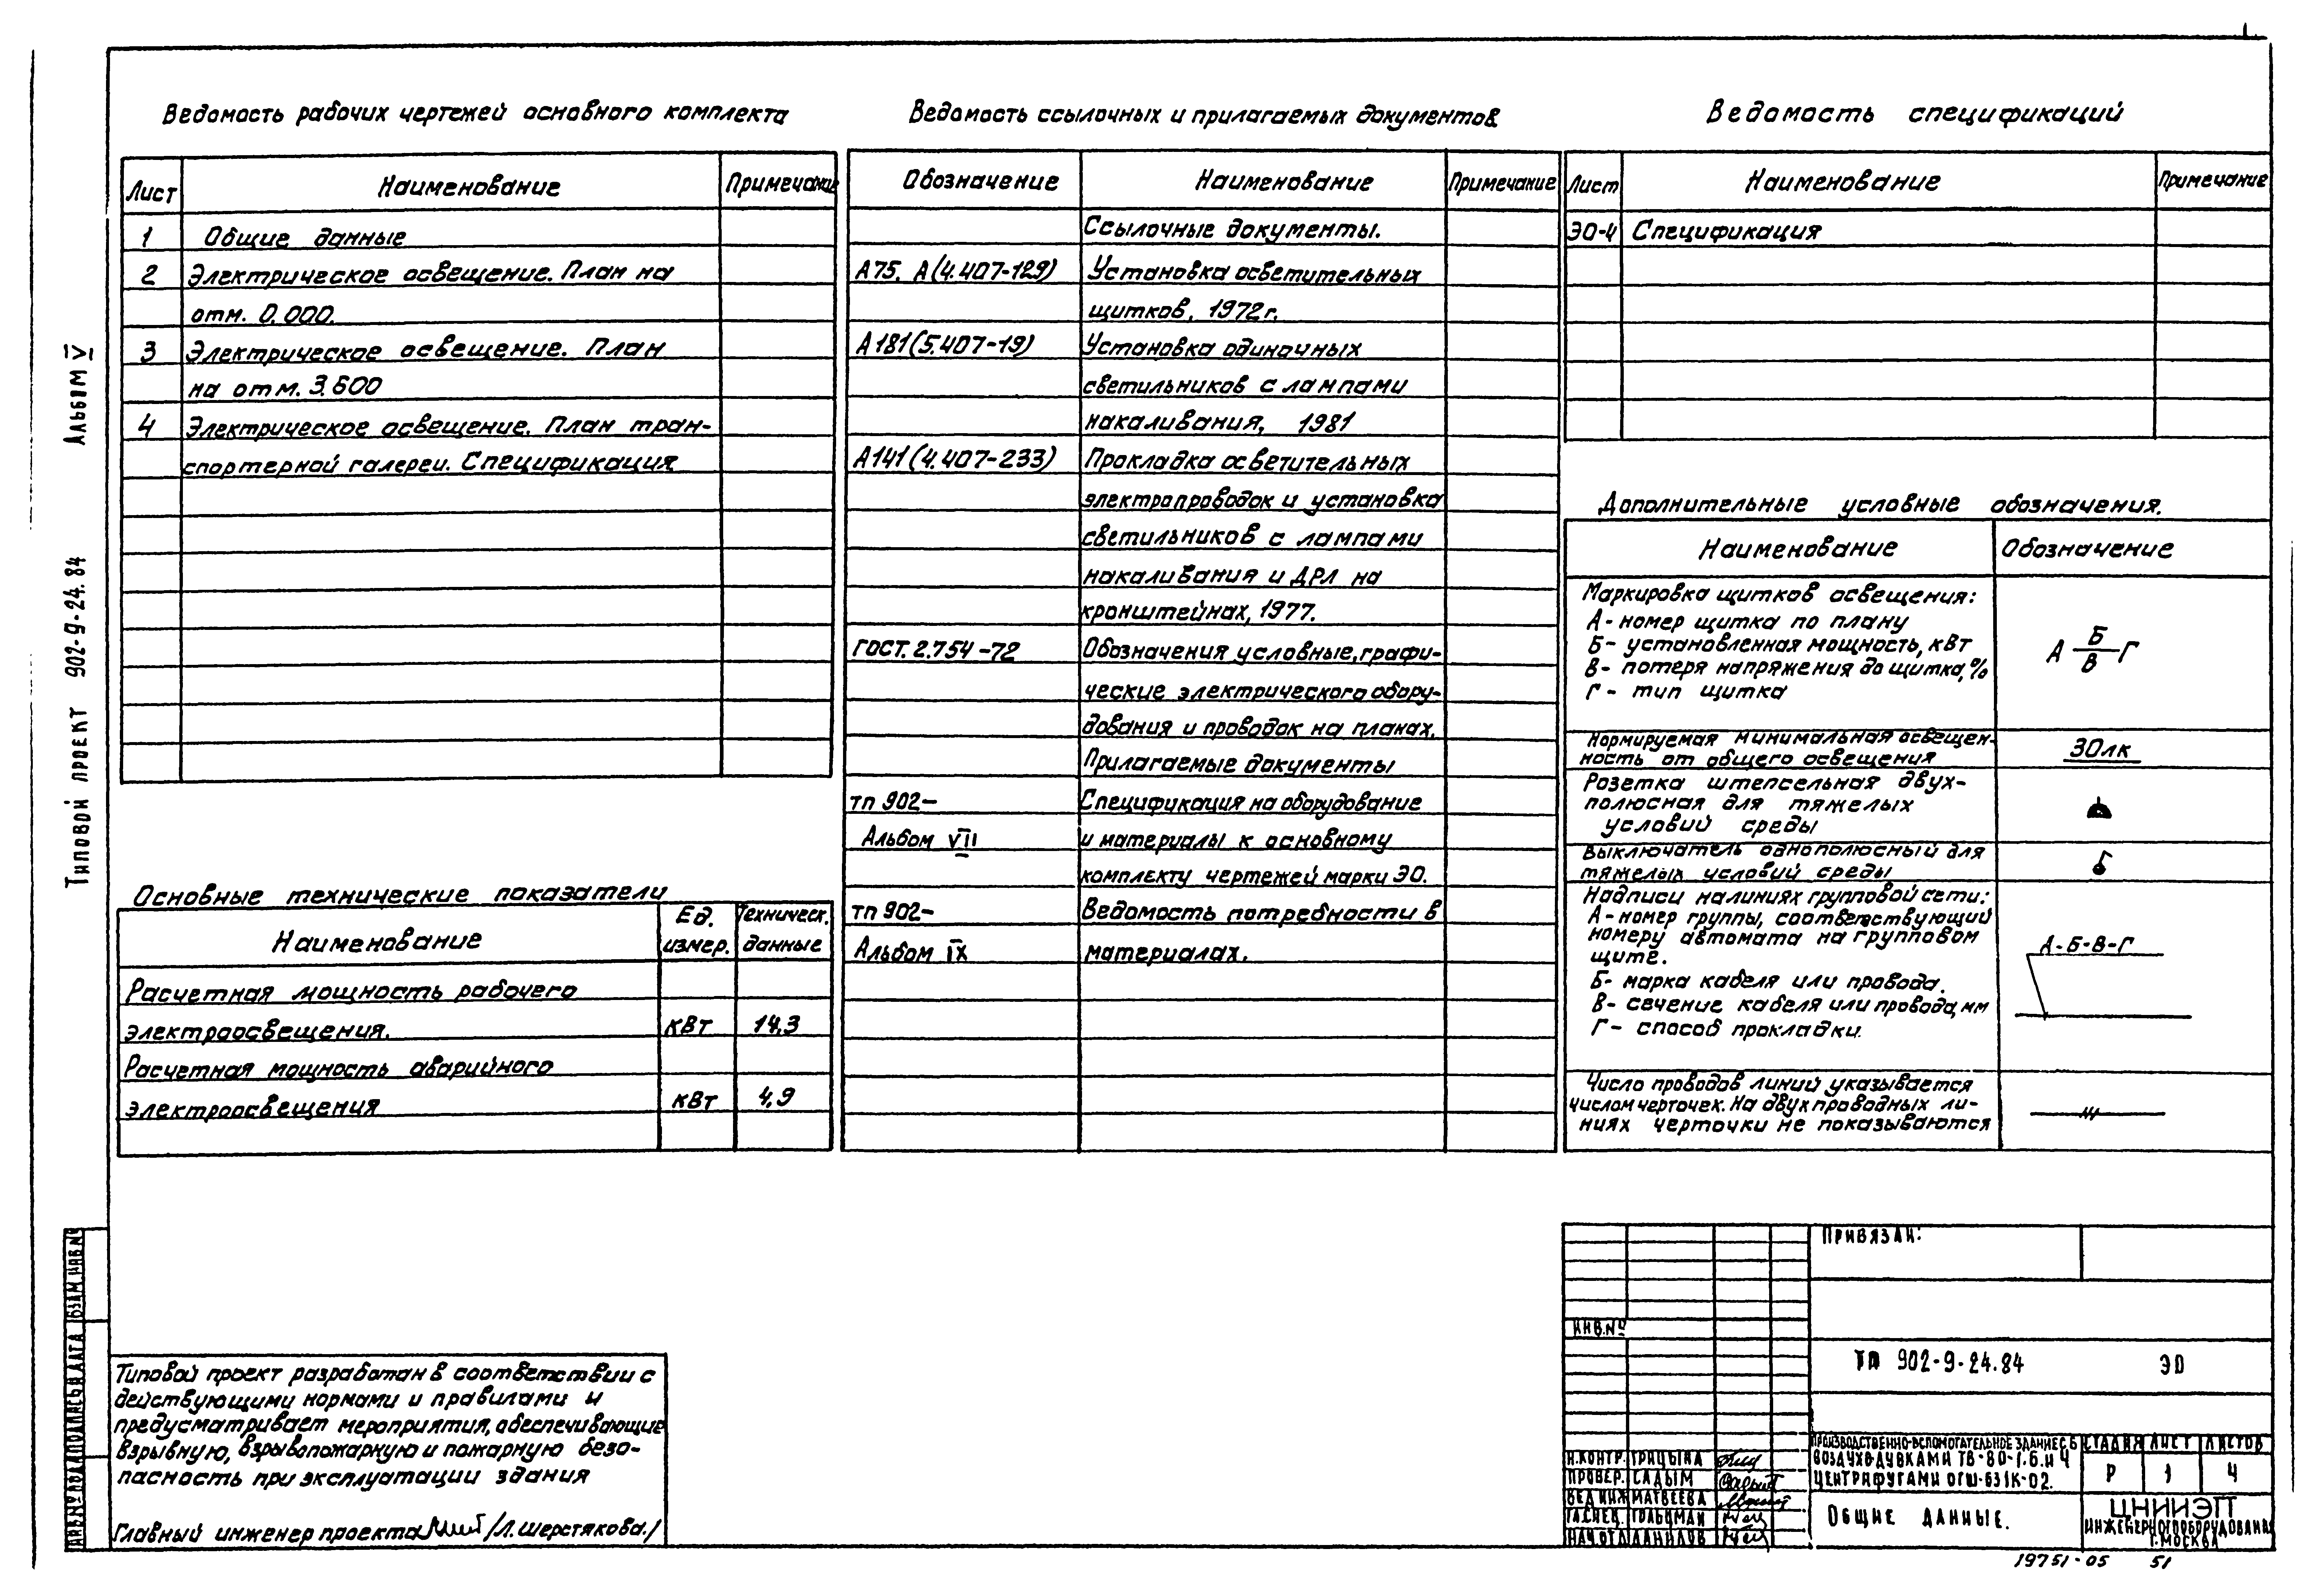 Ведомость рабочих чертежей основного комплекта
Лист Наименование Примечание
1 Общие данные
2 Электрическое освещение. План на
отм. 0.000.
3 Электрическое освещение. План
на отм. 3.600
4 Электрическое освещение. План тран-
спортерной галереи. Спецификация
Основные технические показатели
Наименование Ед. измер. Техническ. данные
Расчетная мощность рабочего
электроосвещения. кВт 14,3
Расчетная мощность аварийного
электроосвещения кВт 4,9
Ведомость ссылочных и прилагаемых документов
Обозначение Наименование Примечание
Ссылочные документы.
А75. А(4.407-129) Установка осветительных
щитков, 1972г.
А181(5.407-19) Установка одиночных
светильников с лампами
накаливания, 1981
А141(4.407-233) Прокладка осветительных
электропроводок и установка
светильников с лампами
накаливания и ДРЛ на
кронштейнах, 1977.
ГОСТ. 2.754-72 Обозначения условные, графи-
ческие электрического обору-
дования и проводок на планах.
Прилагаемые документы
тп 902- Спецификация на оборудование
Альбом VII и материалы к основному
комплекту чертежей марки ЭО.
тп 902- Ведомость потребности в
Альбом IX материалах.
Ведомость спецификаций
Лист Наименование Примечание
ЭО-4 Спецификация
Дополнительные условные обозначения.
Наименование Обозначение
Маркировка щитков освещения:
А- номер щитка по плану
Б- установленная мощность, кВт
В- потеря напряжения до щитка, %
Г- тип щитка
А Б/В Г
Нормируемая минимальная освещен-
ность от общего освещения
30лк
Розетка штепсельная двух-
полюсная для тяжелых
условий среды
Выключатель однополюсный для
тяжелых условий среды
Надписи на линиях групповой сети:
А- номер группы, соответствующий
номеру автомата на групповом
щите.
Б- марка кабеля или провода.
В- сечение кабеля или провода, мм
Г- способ прокладки.
А-Б-В-Г
Число проводов линий указывается
числом черточек. На двухпроводных ли-
ниях черточки не показываются
Типовой проект 902-9-24.84 Альбом V
Типовой проект разработан в соответствии с
действующими нормами и правилами и
предусматривает мероприятия, обеспечивающие
взрывную, взрывопожарную и пожарную безо-
пасность при эксплуатации здания
Главный инженер проекта /Л. Шерстякова./
Привязан:
Инв.№
ТП 902-9-24.84 ЭО
Н.контр. Грицына
Провер. Садым
Вед.инж Матвеева
Гл.спец. Гольцман
Нач.отд Данилов
Производственно-вспомогательное здание с 6
воздуходувками ТВ-80-1.6. и 4
центрифугами ОГШ-631К-02.
Стадия Лист Листов
Р 1 4
Общие данные.
ЦНИИЭП
инженерного оборудования
г. Москва
19751-05 51